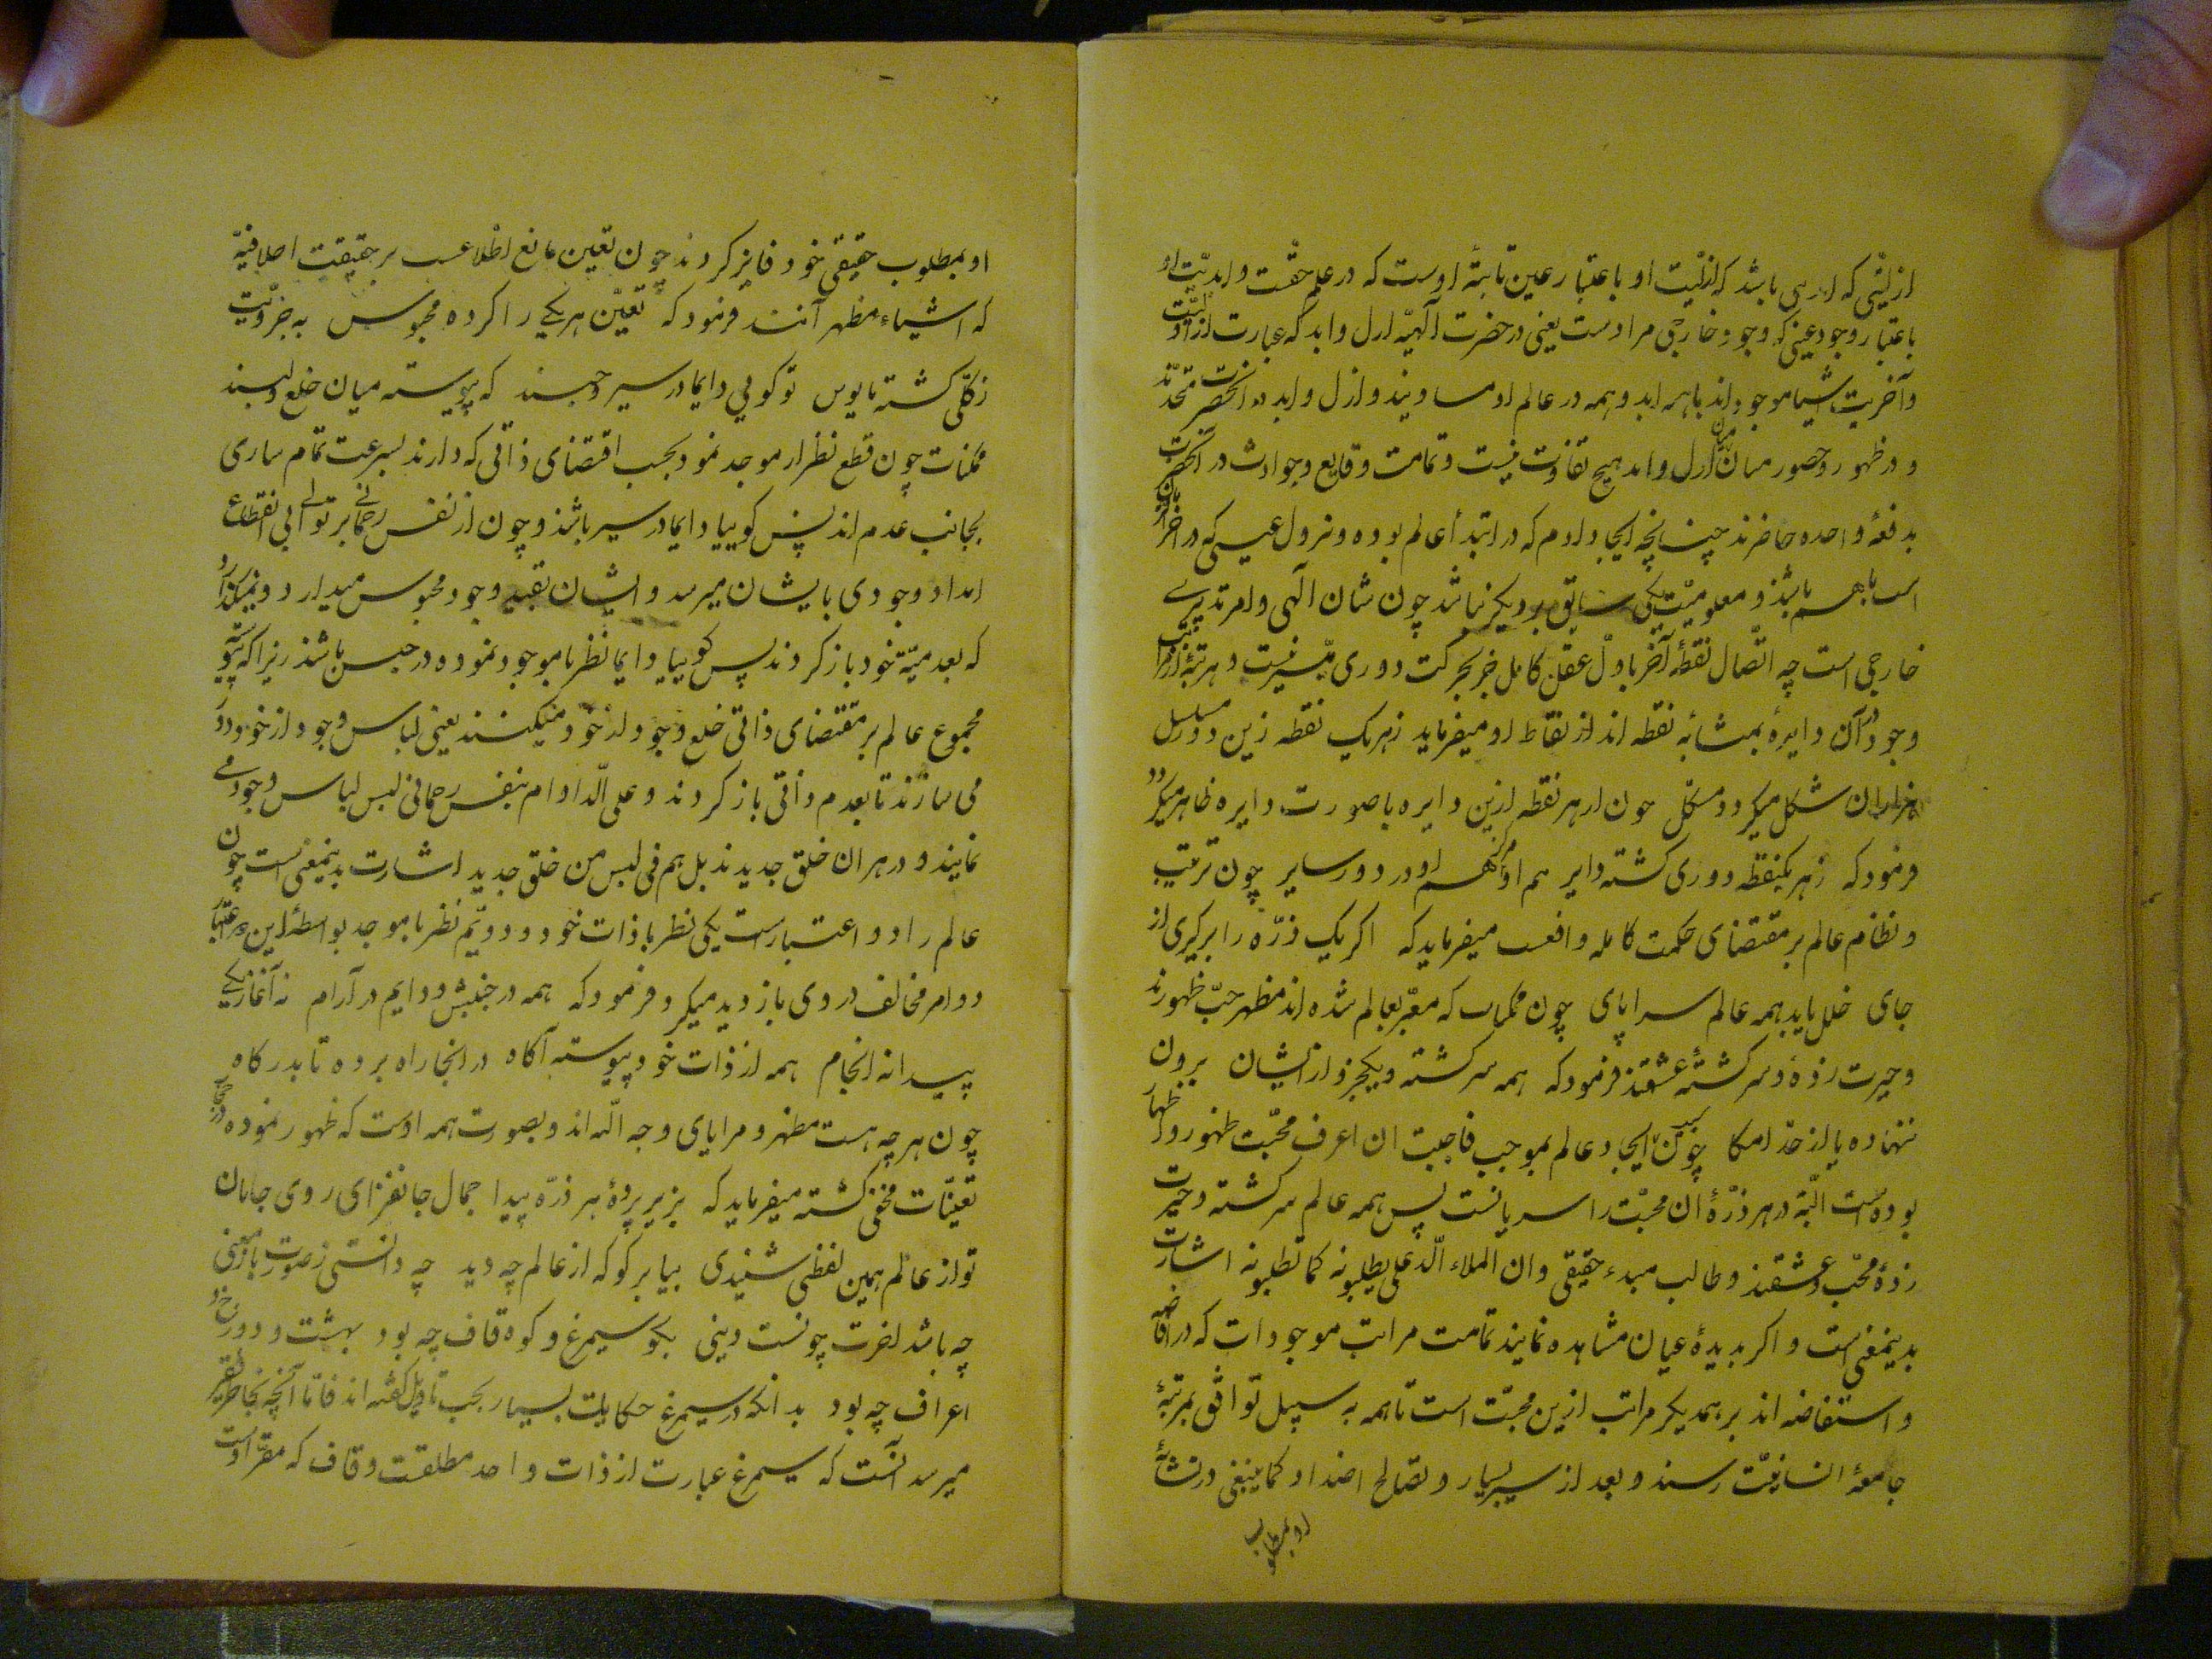 ازلیتی که ازلی باشد که ازلیت او باعتبار عین ثابتهٔ اوست که در علم حقست و ابدیت او
باعتبار وجود عینی که وجود خارجی مراد است یعنی در حضرت آلهیه ازل و ابد که عبارت از اولیت
و آخریت اشیا موجودند باهم ابد و همه در عالم او مساویند و ازل و ابد در آنحضرت متحدند
و در ظهور و حضور میان ازل و ابد هیچ تفاوت نیست و تمامت وقایع و حوادث در آنحضرت
بدفعهٔ واحده حاضرند چنانچه ایجاد آدم که در ابتدأ عالم بوده و نزول عیسی که در آخر زمان
است باهم باشد و معلومیت یکی سابق بر دیگر نباشد چون شان آلهی و امر تدبیری
خارجی است چه اتصال نقطهٔ آخر باول عقل کامل جز بحرکت دوری میسر نیست و هر مرتبهٔ از مراتب
وجود در آن دایره بمثابهٔ نقطه اند از نقاط او میفرماید ز هر یک نقطه زین دور مسلسل
هزاران شکل میگردد مشکل چون از هر نقطه ازین دایره باصورت دایره ظاهر میگردد
فرمود که ز هر یکنقطه دوری گشته دایر هم او مرکز هم او در دور سایر چون ترتیب
و نظام عالم بر مقتضای حکمت کامله واقعست میفرماید که اگر یک ذره را برگیری از
جای خلل یابد همه عالم سراپای چون ممکنات که معبر بعالم شده اند مظهر حب ظهورند
و حیرت زده و سرگشتهٔ عشقند فرمود که همه سرگشته و یکجزو از ایشان برون
ننهاده پا از حد امکان چون سبب ایجاد عالم بموجب فاحببت ان اعرف محبت ظهور و اظهار
بوده است البته در هر ذرهٔ آن محبت را سریانست پس همه عالم سرگشته و حیرت
زدهٔ محبت و عشقند و طالب مبدء حقیقی و ان الملاء الاعلی یطلبونه کما تطلبونه اشارت
بدینمعنی است و اگر بدیدهٔ عیان مشاهده نمایند تمامت مراتب موجودات که در افاضه
و استفاضه اند بر همدیگر مراتب ازین محبت است تا همه به سبیل توافق بمرتبهٔ
جامعهٔ انسانیت رسند و بعد از سیر بسیار و تصالح اضداد کما ینبغی در نشأهٔ
او بمطلوب
او بمطلوب حقیقی خود فایز گردند چون تعین مانع اطلاعست بر حقیقت اطلاقیهٔ
که اشیاء مظهر آنند فرمود که تعین هر یکی را کرده محبوس به جزویت
ز کلی گشته مایوس تو گویی دایما در سیر و حبسند که پیوسته میان خلع و لبسند
ممکنات چون قطع نظر از موجد نمود بحسب اقتضای ذاتی که دارند بسرعت تمام ساری
بجانب عدم اند پس گوییا دایما در سیر باشند و چون از نفس رحمانی بر توالی بی انقطاع
امداد وجودی بایشان میرسد و ایشان بقید وجود محبوس میدارد و نمیگذارد
که بعدمیهٔ خود باز گردند پس گوییا دایما نظر با موجود نموده در حبس باشند زیرا که پیوسته
مجموع عالم بر مقتضای ذاتی خلع وجود از خود میکنند یعنی لباس وجود از خود دور
می سازند تا بعدم ذاتی باز گردند و علی الداوام بنفس رحمانی لبس لباس وجود می
نمایند و در هر آن خلق جدیدند بل هم فی لبس من خلق جدید اشارت بدینمعنی است چون
عالم را دو اعتبارست یکی نظر با ذات خود و دویم نظر با موجد بواسطهٔ این دو اعتبار
دو امر مخالف در وی بازدید میگردد فرمود که همه در جنبش و دایم در آرام نه آغاز یکی
پیدا نه انجام همه از ذات خود پیوسته آگاه در انجا راه برده تا بدرگاه
چون هر چه هست مظهر و مرایای وجه الله اند و بصورت همه اوست که ظهور نموده و در
تعینات مخفی گشته میفرماید که بزیر پردهٔ هر ذره پیدا جمال جانفزای روی جانان
تو از عالم همین لفظی شنیدی بیا بر گو که از عالم چه دید چه دانستی ز صورت یا ز معنی
چه باشد آخرت چونست دینی بگو سیمرغ و کوه قاف چه بود بهشت و دوزخ و
اعراف چه بود بدانکه در سیمرغ حکایات بسیار بحسب تاویل گفته اند فاما آنچه بخاطر فقیر
میرسد آنست که سیمرغ عبارت از ذات واحد مطلقست و قاف که مقر اوست